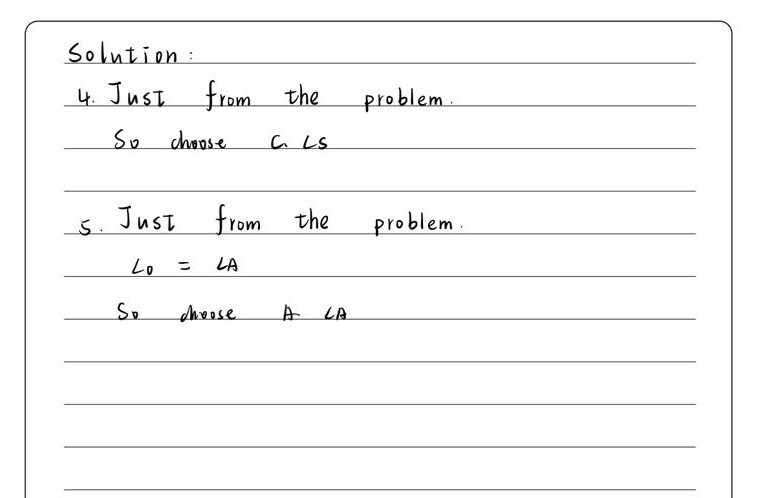 Solution:
4. Just from the problem.
So choose C. ∠S
5. Just from the problem.
∠O = ∠A
So choose A ∠A